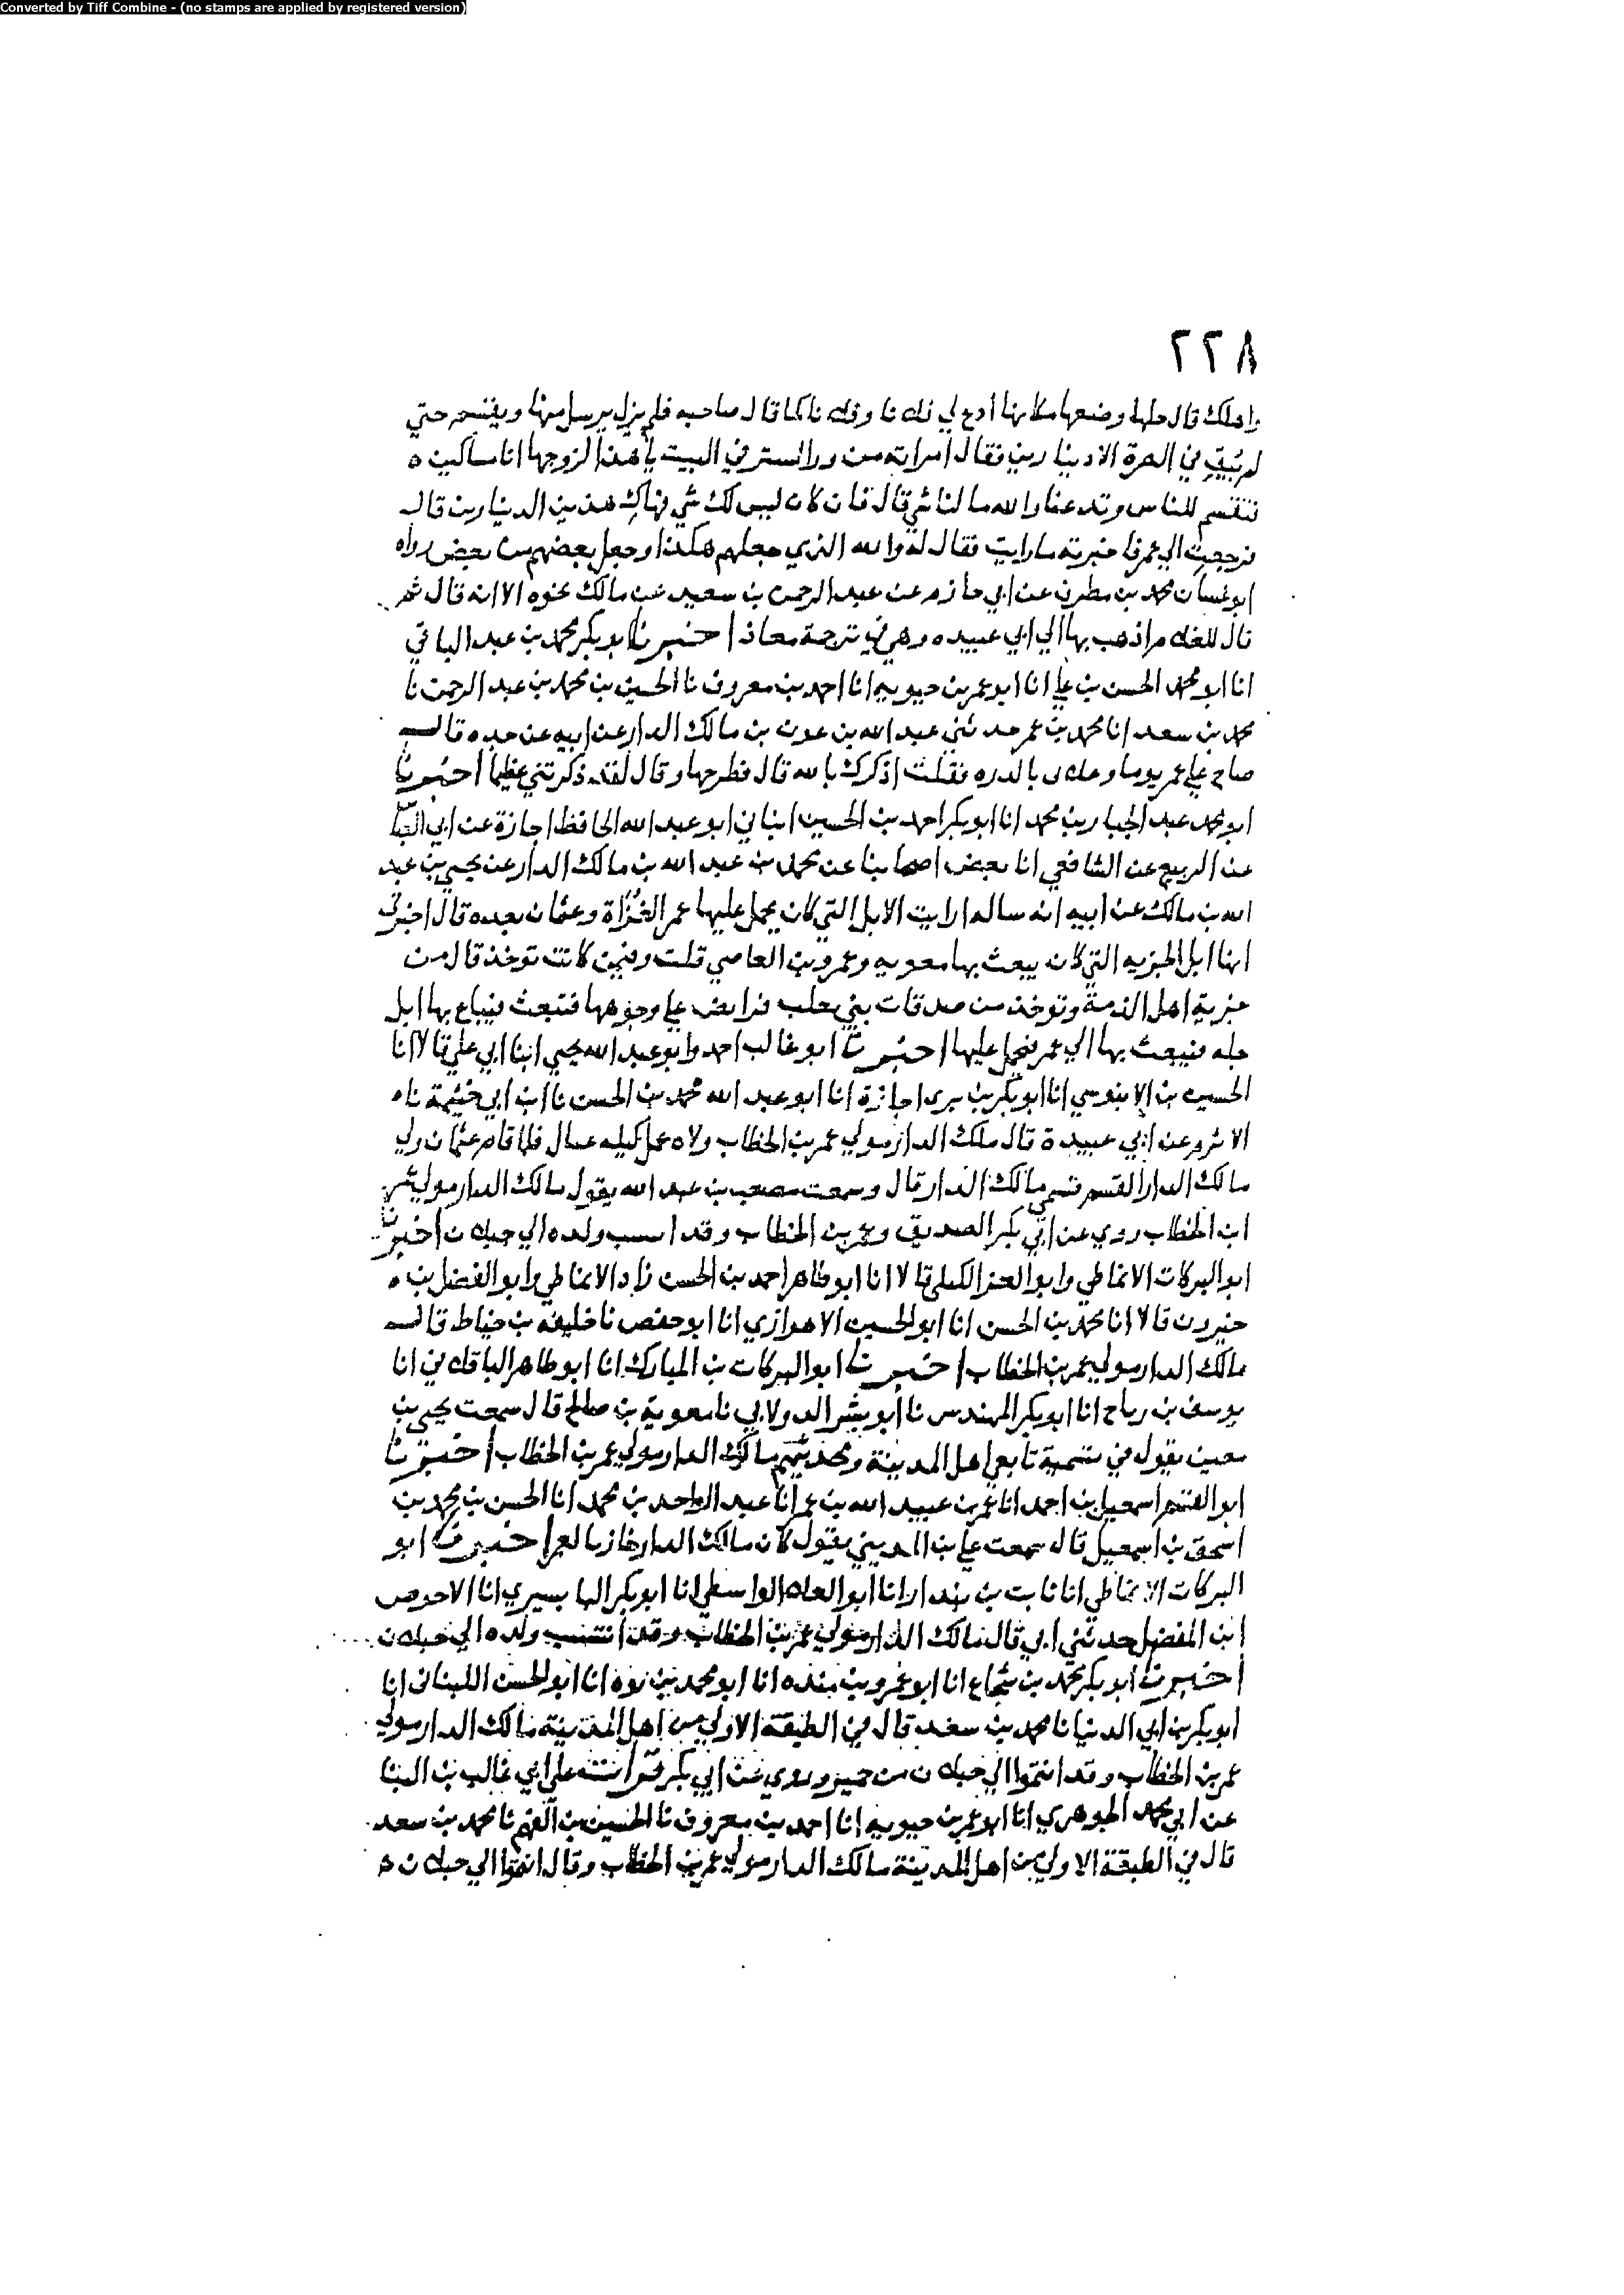 Converted by Tiff Combine - (no stamps are applied by registered version)
٢٢٨
واهلك قال حلها وضعها مكانها ادع لي فلانا وفلانا كما قال صاحبه فلم يزل يرسل منها ويقسم حتي
لم يبق في الصرة الا دينارين فقال امراته من ورا الستر في البيت يا هذا لزوجها انا مساكين ه
تقسم للناس وتدعنا والله ما لنا شي قال فان كان ليس لك شي فهاك هذين الدينارين قال
فرجعت الي عمر فاخبرته ما رايت فقال له والله الذي جعلهم هكذا وجعل بعضهم من بعض رواه
ابو غسان محمد بن مطرف عن ابي حازم عن عبد الرحمن بن سعيد عن مالك نحوه الا انه قال ثم
قال للغلام اذهب بها الي ابي عبيده وهي في ترجمة معاذ اخبرنا ابو بكر محمد بن عبد الباقي
انا ابو محمد الحسن بن علي انا ابو عمر بن حيويه انا احمد بن معروف نا الحسين بن محمد بن عبد الرحمن نا
محمد بن سعد انا محمد بن عمر حدثني عبد الله بن عون بن مالك الدار عن ابيه عن جده قال
صاح علي عمر يوما وعلاني بالدره فقلت اذكرك بالله قال فطرحها وقال لقد ذكرتني عظيما اخبرنا
ابو محمد عبد الجبار بن محمد انا ابو بكر احمد بن الحسين انباني ابو عبد الله الحافظ اجازة عن ابي العباس
عن الربيع عن الشافعي انا بعض اصحابنا عن محمد بن عبد الله بن مالك الدار عن يحيي بن عبد
الله بن مالك عن ابيه انه ساله ارايت الابل التي كان يحمل عليها عمر الغزاة وعثمان بعده قال اخبرني
انها ابل الجزيه التي كان يبعث بها معويه وعمرو بن العاصي قلت وممن كانت توخذ قال من
جزية اهل الذمة وتوخذ من صدقات بني تغلب فرايض علي وجوهها فتبعث فيباع بها ابل
جله فيبعث بها الي عمر فيحمل عليها اخبرنا ابو غالب احمد وابو عبد الله يحيي ابنا ابي علي قالا انا
الحسين بن الابنوسي انا ابو بكر بن بيري اجازة انا ابو عبد الله محمد بن الحسن نا ابن ابي خيثمة نا ه
الاثرم عن ابي عبيدة قال ملك الدار مولي عمر بن الخطاب ولاه عمر كيله عيال فلما قام عثمان ولي
مالك الدار القسم فسمي مالك الدار قال وسمعت مصعب بن عبد الله يقول مالك الدار مولي عمر
ابن الخطاب روي عن ابي بكر الصديق وعمر بن الخطاب وقد انتسب ولده الي جبلان اخبرنا
ابو البركات الانماطي وابو العز الكيلي قالا انا ابو طاهر احمد بن الحسن زاد الانماطي وابو الفضل بن ه
خيرون قالا انا محمد بن الحسن انا ابو الحسين الاهوازي انا ابو حفص نا خليفة بن خياط قال
مالك الدار مولي عمر بن الخطاب اخبرنا ابو البركات بن المبارك انا ابو طاهر الباقلاني انا
يوسف بن رباح انا ابو بكر المهندس نا ابو بشر الدولابي نا معوية بن صالح قال سمعت يحيي بن
معين يقول في تسمية تابعي اهل المدينة ومحدثيهم مالك الدار مولي عمر بن الخطاب اخبرنا
ابو الفتح اسمعيل بن احمد انا عمر بن عبيد الله بن عمر انا عبد الواحد بن محمد انا الحسن بن محمد بن
اسحق نا اسمعيل قال سمعت علي بن المديني يقول كان مالك الدار خازنا لعمر اخبرنا ابو
البركات الانماطي انا ثابت بن بندار انا ابو العلاء الواسطي انا ابو بكر البابسيري انا الاحوص
ابن المفضل حدثني ابي قال مالك الدار مولي عمر بن الخطاب وقد انتسب ولده الي جبلان
اخبرنا ابو بكر محمد بن شجاع انا ابو عمرو بن منده انا ابو محمد بن يوه انا ابو الحسن اللبناني انا
ابو بكر بن ابي الدنيا نا محمد بن سعد قال في الطبقة الاولي من اهل المدينة مالك الدار مولي
عمر بن الخطاب وقد انتموا الي جبلان من حمير وروي عن ابي بكر قرات علي ابي غالب بن البنا
عن ابي محمد الجوهري انا ابو عمر بن حيويه انا احمد بن معروف نا الحسين بن الفهم نا محمد بن سعد
قال في الطبقة الاولي من اهل المدينة مالك الدار مولي عمر بن الخطاب وقال انتموا الي جبلان ه